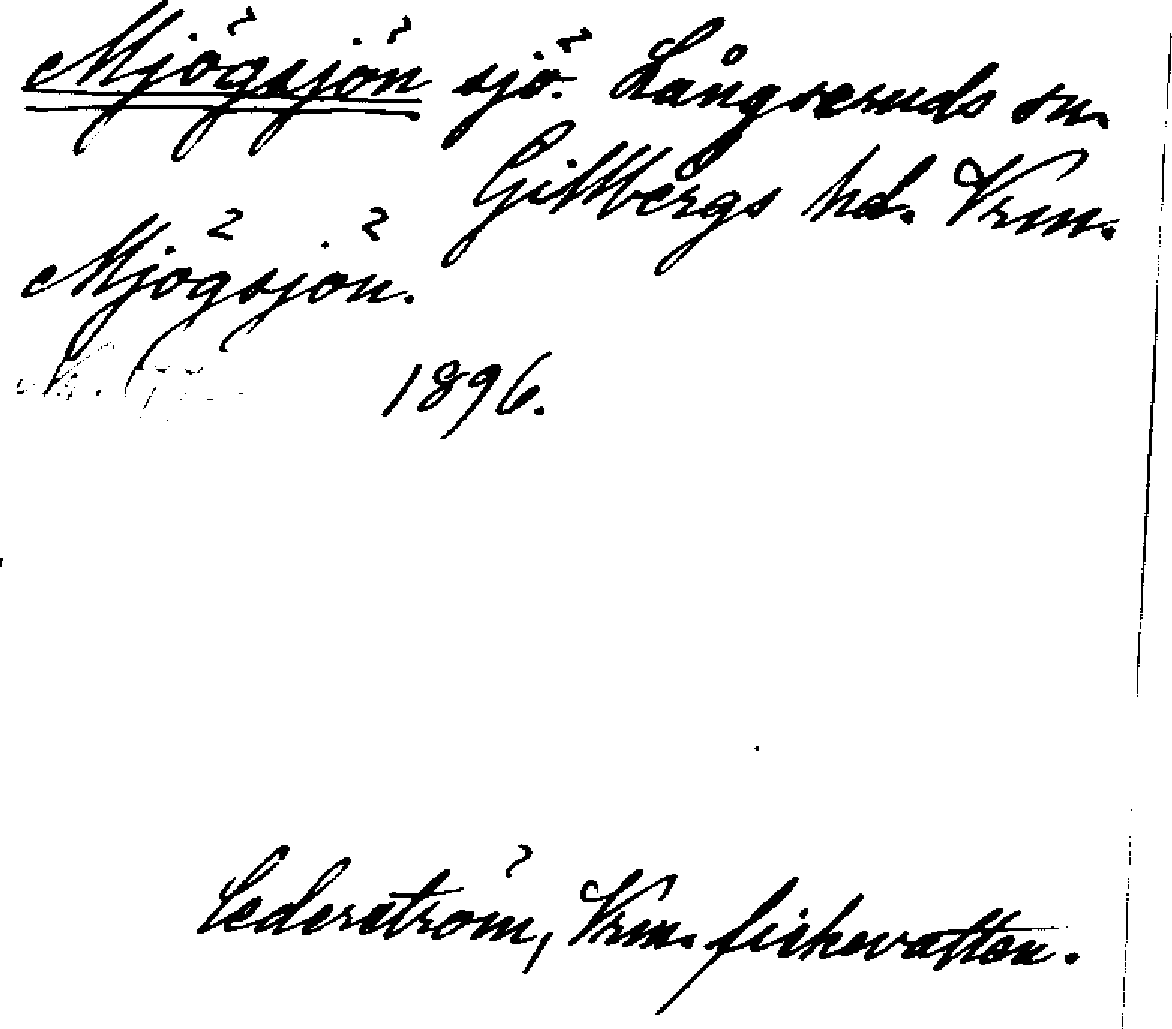 Mjögsjön sjö. Långseruds sn.
Gillbergs hd. Vrm.
Mjögsjön.
1896.
Cederström, Vrm. fiskevatten.